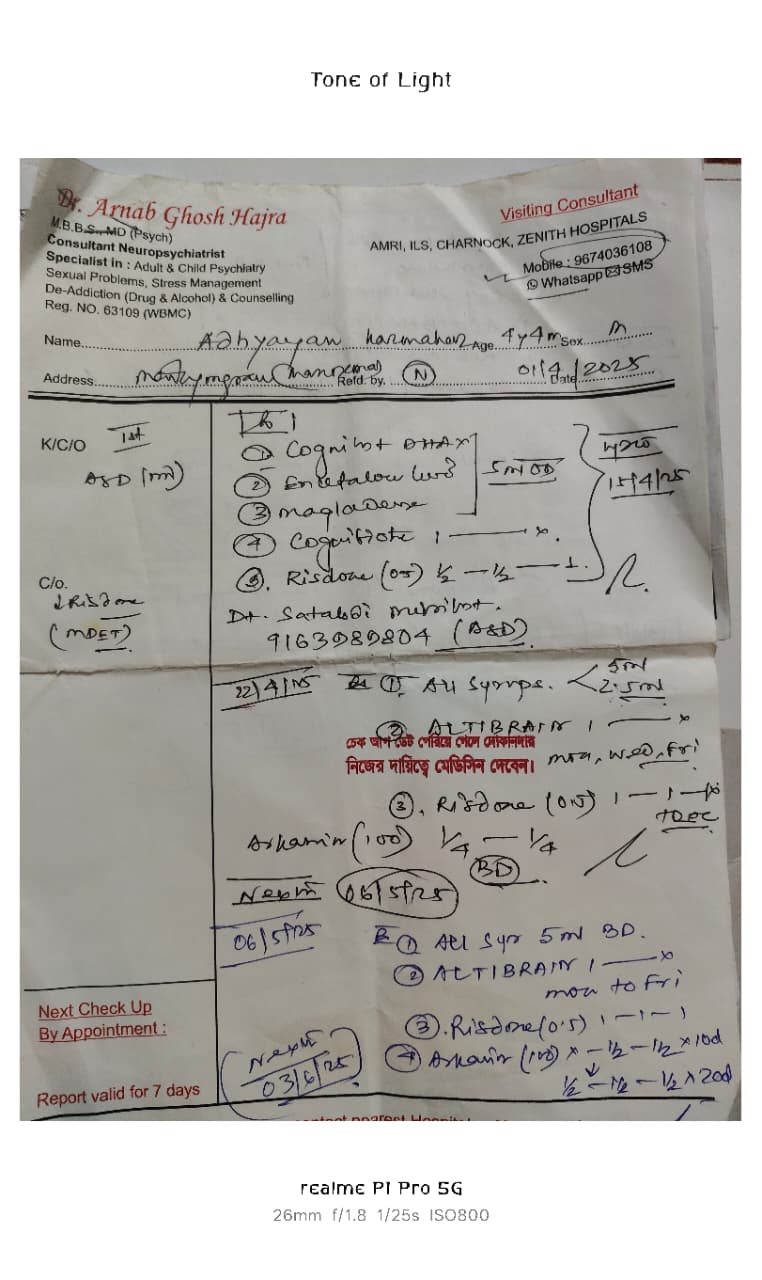 Tone of Light
Dr. Arnab Ghosh Hajra
M.B.B.S., MD (Psych)
Consultant Neuropsychiatrist
Specialist in : Adult & Child Psychiatry
Sexual Problems, Stress Management
De-Addiction (Drug & Alcohol) & Counselling
Reg. NO. 63109 (WBMC)
Visiting Consultant
AMRI, ILS, CHARNOCK, ZENITH HOSPITALS
Mobile : 9674036108
Whatsapp SMS
Name Adhyayan Karmakar Age 4y4m Sex M
Address Refd. by. N Date 01/4/2025
K/C/O 1st
ASD
① DHAX
②
③
5ml OD
15/4/25
④ 1 — x
⑤. Risdone (0.5) ½ — ½ — 1
C/o.
↓ Risdone
Dt.
9163989804 (ASD)
22/4/25 ① All Syrups. 5ml
2.5ml
② ALTIBRAIN 1 — x
চেক আপ ডেট পেরিয়ে গেলে দোকানদার
নিজের দায়িত্বে মেডিসিন দেবেন।
Mon, Wed, Fri
③. Risdone (0.5) 1 — 1 — x
Arkamin (100) ¼ — ¼
BD
Next 06/5/25
06/5/25 ① All Syr 5ml BD.
② ALTIBRAIN 1 — x
Mon to Fri
③. Risdone (0.5) 1 — 1 — 1
④ Arkamin (100) x — ½ — ½ x 10d
½ — ½ — ½ x 20d
Next
03/6/25
Next Check Up
By Appointment :
Report valid for 7 days
realme P1 Pro 5G
26mm f/1.8 1/25s ISO800